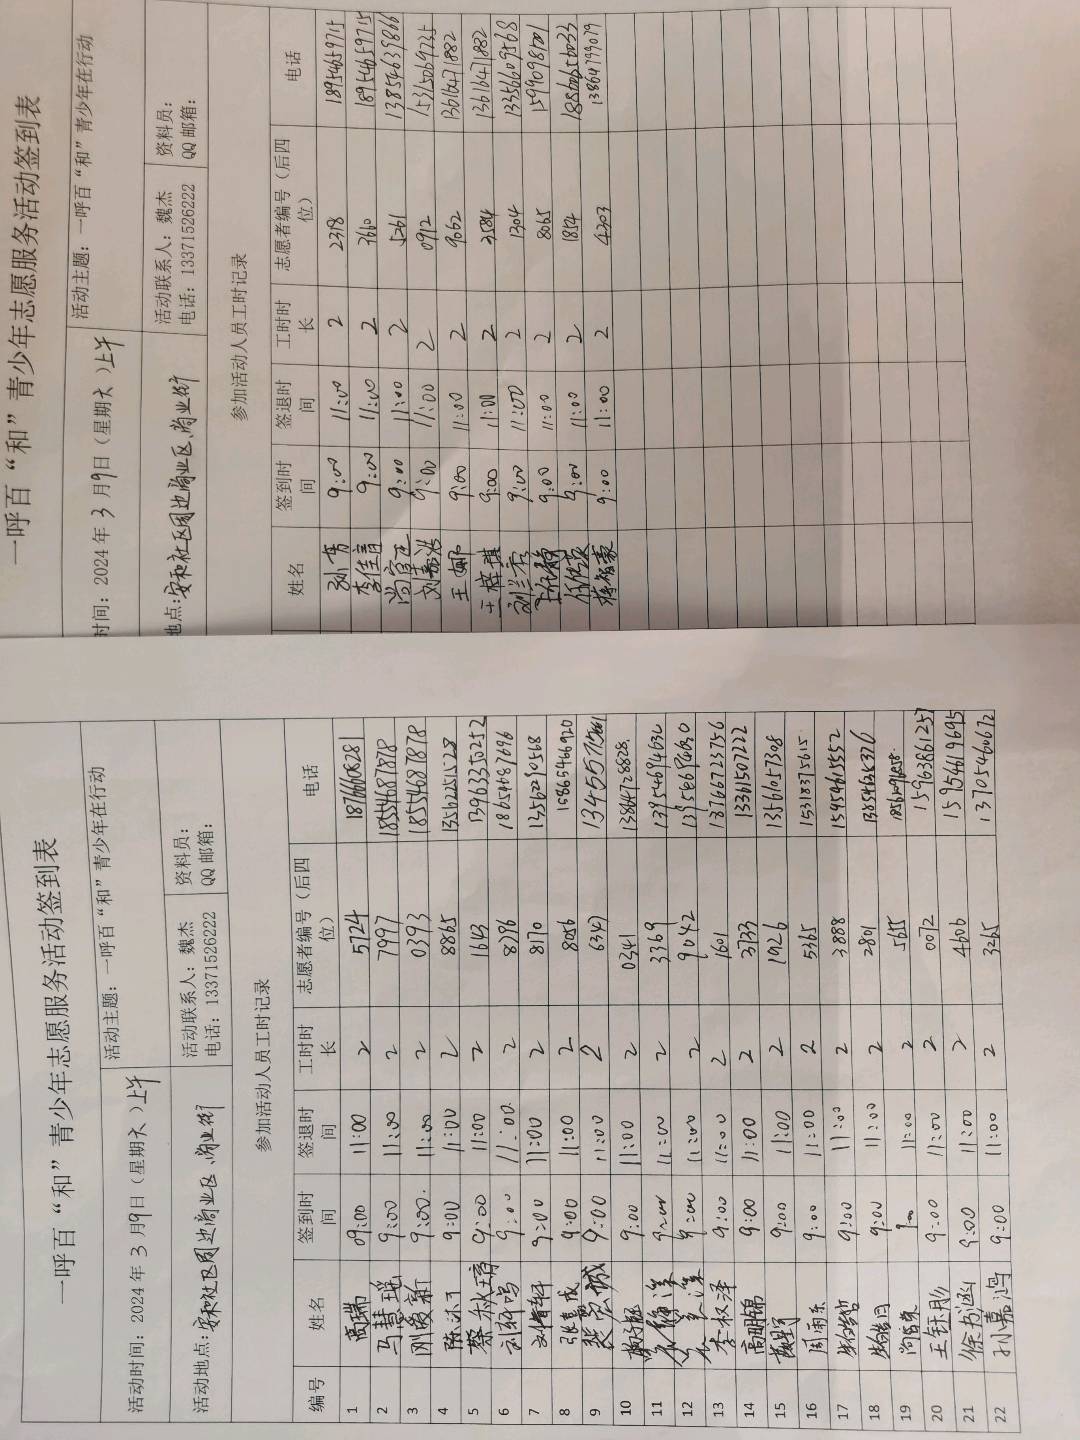 一呼百“和”青少年志愿服务活动签到表
活动时间：2024年3月9日（星期六）上午 活动主题：一呼百“和”青少年在行动
活动地点：安和社区周边商业区、商业街 活动联系人：魏杰 资料员：
电话：13371526222 QQ邮箱：
参加活动人员工时记录
编号 姓名 签到时间 签退时间 工时时长 志愿者编号（后四位） 电话
1 高瑞 09:00 11:00 2 5724
2 马慧瑶 9:00 11:00 2 7997 18554687878
3 9:00. 11:00 2 0393 18554687878
4 9:00 11:00 2 8865 13562251228
5 9:00 11:00 2 1643 13963350252
6 9:00 11:00. 2 8796 18054687696
7 9:00 11:00 2 8170 13562290568
8 张嘉成 9:00 11:00 2 8056 15865466920
9 9:00 11:00 2 6347
10 9:00 11:00 2 0341 13864728828.
11 9:00 11:00 2 3369 13954694630
12 9:00 11:00 2 9042
13 李权泽 9:00 11:00 2 1601 13766723756
14 高明锦 9:00 11:00 2 3733 13361507222
15 9:00 11:00 2 1926 13561057308
16 周雨东 9:00 11:00 2 5365 15318375615.
17 9:00 11:00 2 3888 15954615552
18 9:00 11:00 2 2801
19 11:00 2
20 王钰彤 9:00 11:00 2 0072 15963861257
21 徐书涵 9:00 11:00 2 4606 15954619695
22 孙嘉鸿 9:00 11:00 2 3265 13705460672
一呼百“和”青少年志愿服务活动签到表
时间：2024年3月9日（星期六）上午 活动主题：一呼百“和”青少年在行动
地点：安和社区周边商业区、商业街 活动联系人：魏杰 资料员：
电话：13371526222 QQ邮箱：
参加活动人员工时记录
姓名 签到时间 签退时间 工时时长 志愿者编号（后四位） 电话
孙芳 9:00 11:00 2 2398 18954659715
李佳青 9:00 11:00 2 3660 18954659715
9:00 11:00 2 5261 13854639866
刘嘉浩 9:00 11:00 2 0912 15315069735
王娜 9:00 11:00 2 9062 13616471882
王梓琪 9:00 11:00 2 3584 13616471882
刘兰香 9:00 11:00 2 1304 13356609568
9:00 11:00 2 8065 15990987201
9:00 11:00 2 1854
9:00 11:00 2 4303 13864799079